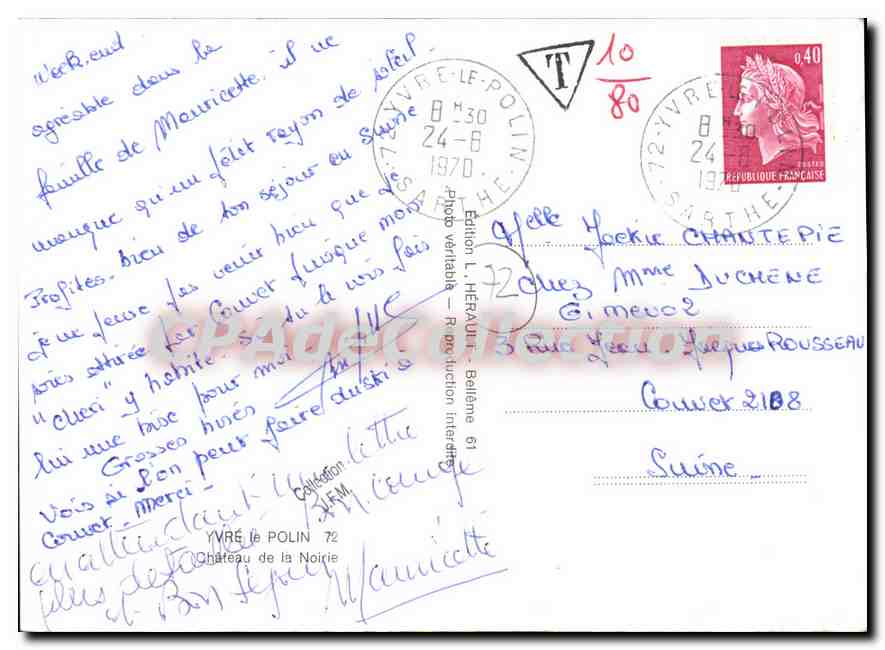 Week-end
agréable dans la
famille de Mauricette. il ne
manque qu'un petit rayon de soleil.
Profites-bien de ton séjour en Suisse
je ne pense pas venir bien que je
sois attirée par Couvet puisque mon
"cheri" y habite. si tu le vois fais
lui une bise pour moi
Grosses bises
Vois si l'on peut faire du ski à
Couvet - Merci -
en attendant une lettre
plus détaillée
Bon séjour
Mauricette
Collection
J.F.M.
YVRÉ le POLIN 72
Château de la Noirie
Edition L. HÉRAULT - Bellême 61
Photo véritable — Reproduction interdite
72-YVRE-LE-POLIN
8 H 30
24-6
1970
SARTHE
T
10
80
0,40
POSTES
REPUBLIQUE FRANÇAISE
72-YVRE-LE-
8 H 30
24-6
1970
SARTHE
72
Melle Jackie CHANTEPIE
chez Mme DUCHENE
Gimenoz
3 Rue Jean-Jacques ROUSSEAU
Couvet 2108
Suisse
CPAdeCollection